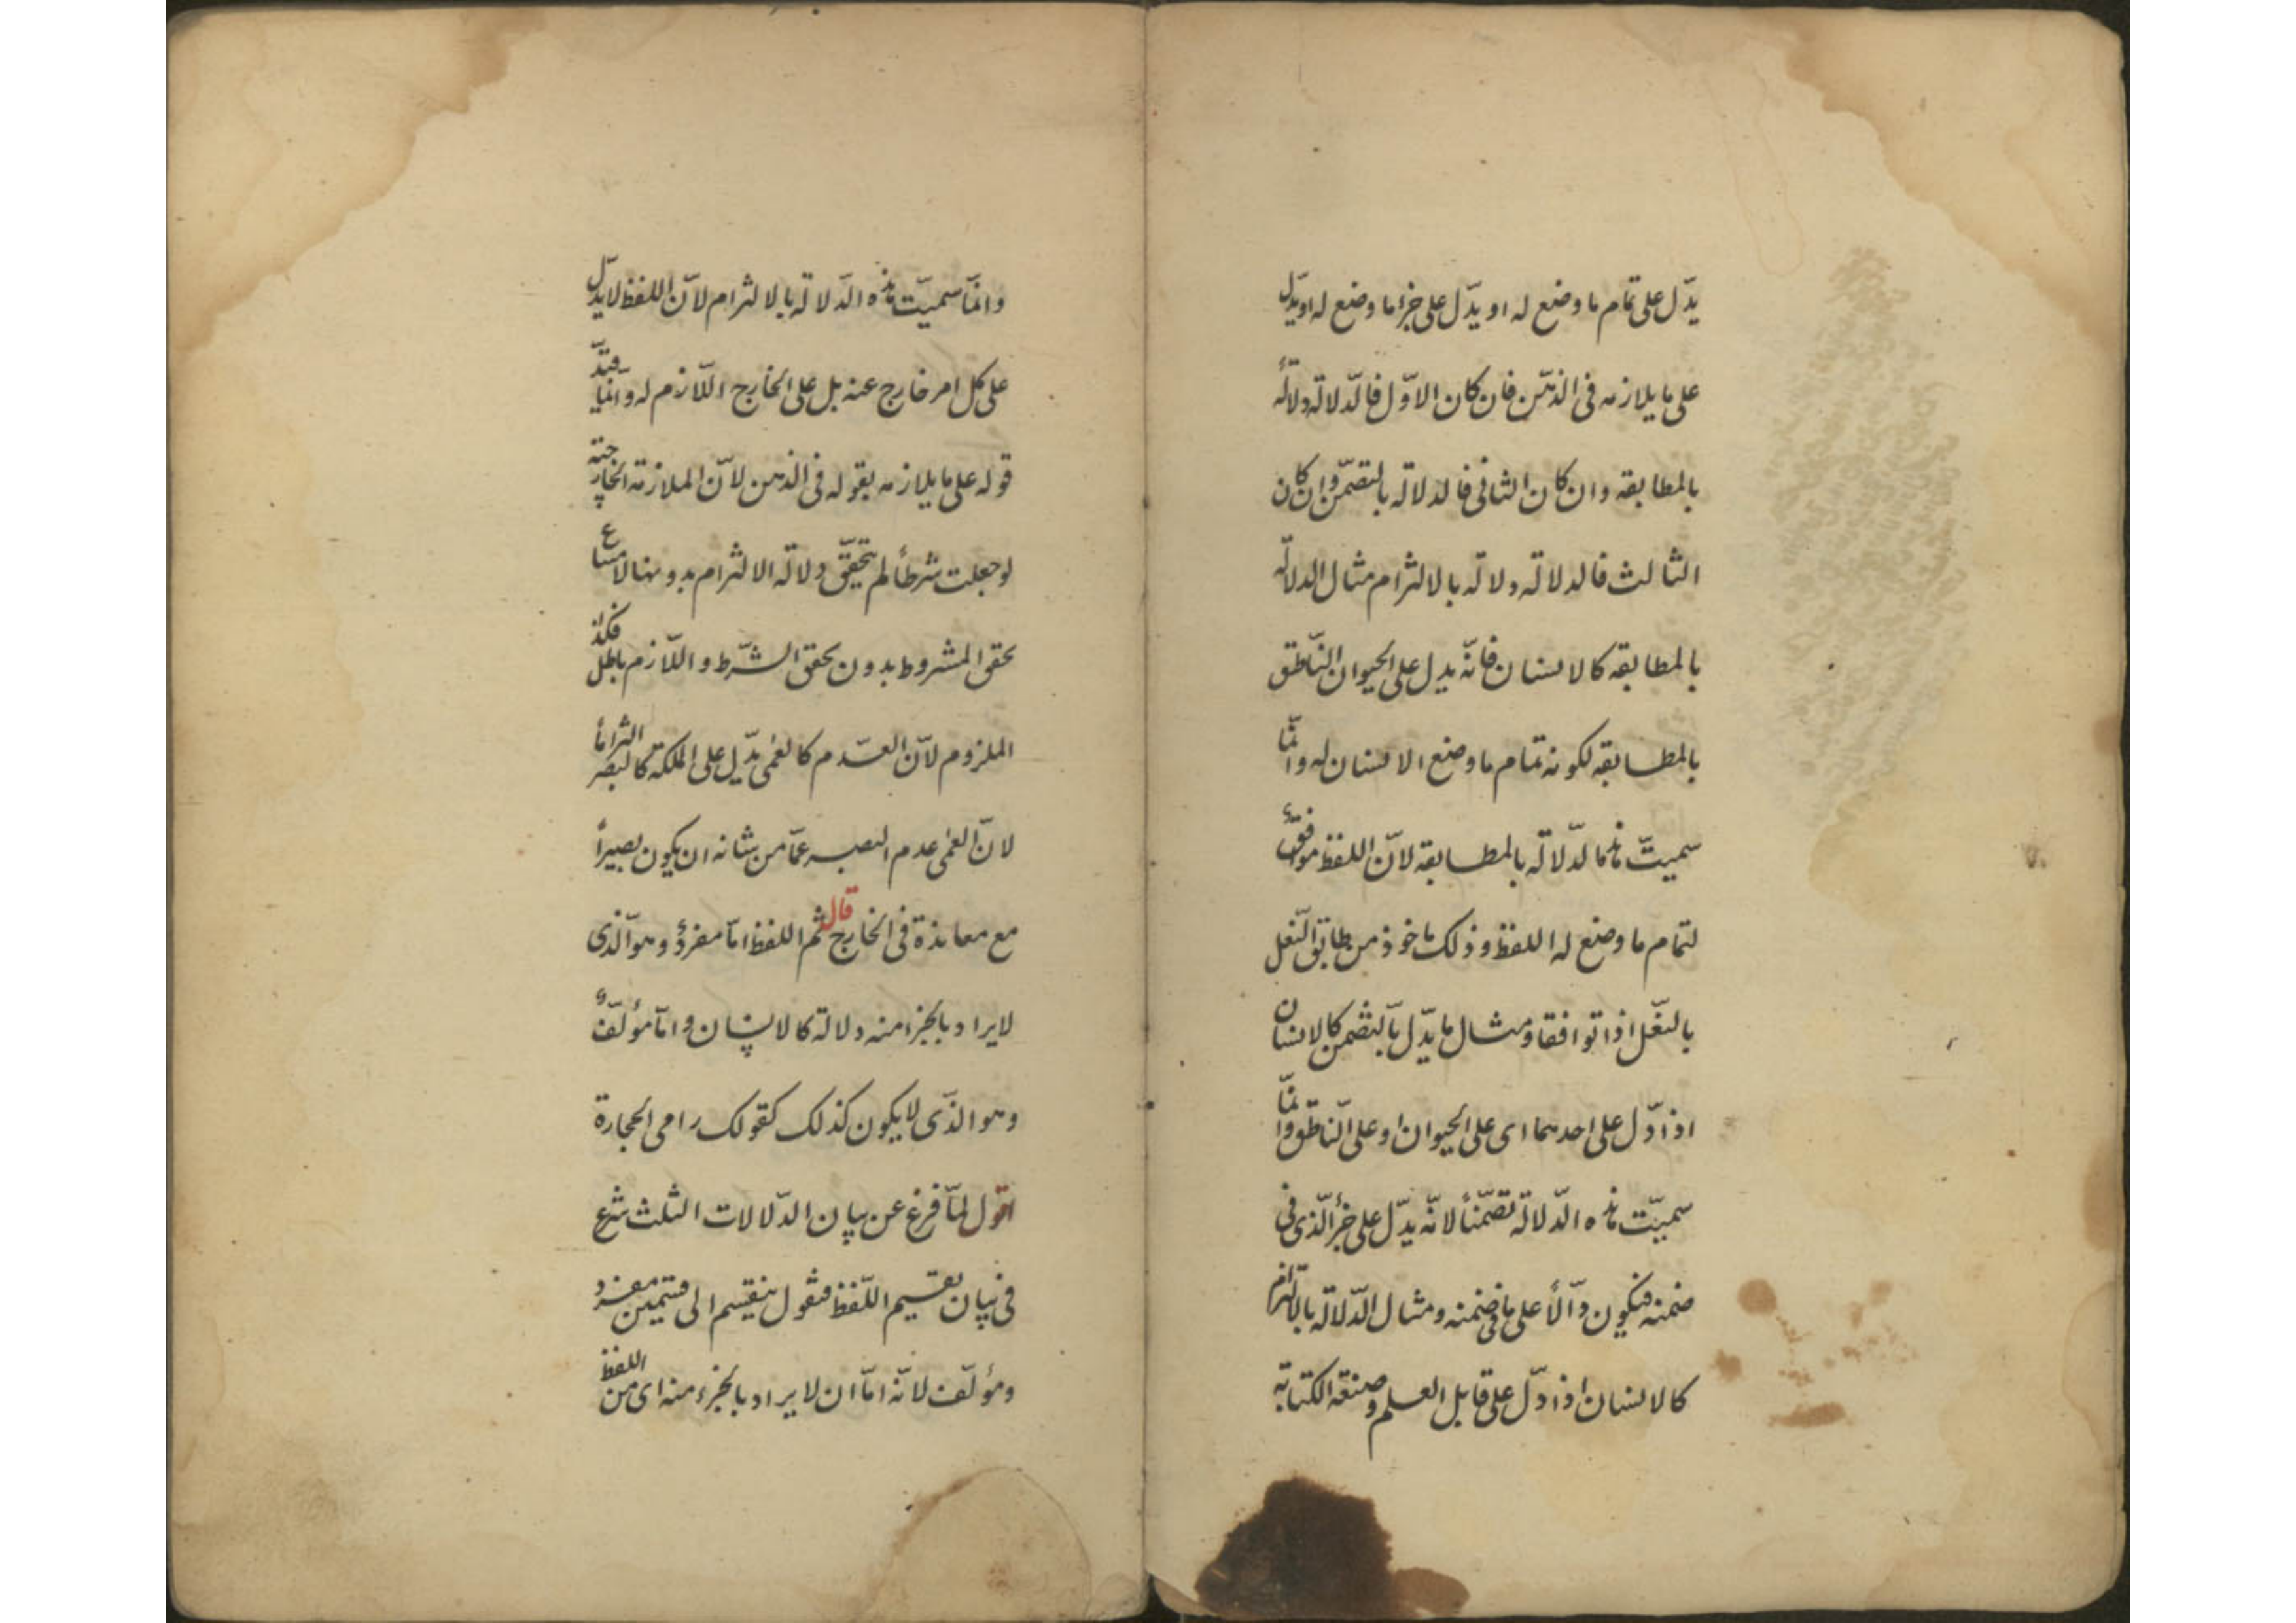 يدّل على تمام ما وضع له او يدّل على جزء ما وضع له او يدّل
على ما يلازمه فى الذهن فان كان الاوّل فالدّلالة دلالةٌ
بالمطابقه وان كان الثانى فالدلالة بالتضمّن وان كان
الثالث فالدلالة دلالة بالالتزام مثال الدلالة
بالمطابقه كالانسان فانّه يدل على الحيوان النّاطق
بالمطابقه لكونه تمام ما وضع الانسان له وانّما
سميتّ هذه الدّلالة بالمطابقة لانّ اللفظ موافقٌ
لتمام ما وضع له اللفظ وذلك ماخوذ من طابق النّعل
بالنّعل اذا توافقا ومثال ما يدّل بالتضمن كالانسان
اذا دّل على احدهما اى على الحيوان او على النّاطق وانّما
سميّت هذه الدّلالة تضمّناً لانّه يدّل على جزأ الّذى فى
ضمنه فيكون دّالاً على ما فى ضمنه ومثال الدّلالة بالالتزام
كالانسان اذا دّل على قابل العلم وصنعة الكتابة
وانمّا سميّت هذه الدّلالة بالالتزام لانّ اللفظ لا يدّل
على كل امر خارج عنه بل على الخارج اللّازم له وانّما قيّد
قوله على ما يلازمه بقوله فى الذهن لانّ الملازمة الخارجيّة
لو جعلت شرطاً لم يتحقّق دلالة الالتزام بدونها لامتناع
تحقق المشروط بدون تحقق الشّرط واللّازم باطل فكذا
الملزوم لانّ العدم كالعمى يدّل على الملكة كالبصر التزاماً
لانّ العمى عدم البصر عمّا من شانه ان يكون بصيراً
مع معاندة فى الخارج قال ثم اللفظ امّا مفردٌ وهو الّذى
لا يراد بالجزء منه دلالة كالانسان وامّا مؤلّفٌ
وهو الذّى لا يكون كذلك كقولك رامى الحجارة
اقول لمّا فرغ عن بيان الدّلالات الثلث شرع
فى بيان تقسيم اللّفظ فنقول ينقسم الى قسمين مفرد
ومؤلّف لانّه امّا ان لا يراد بالجزء منه اى من اللفظ